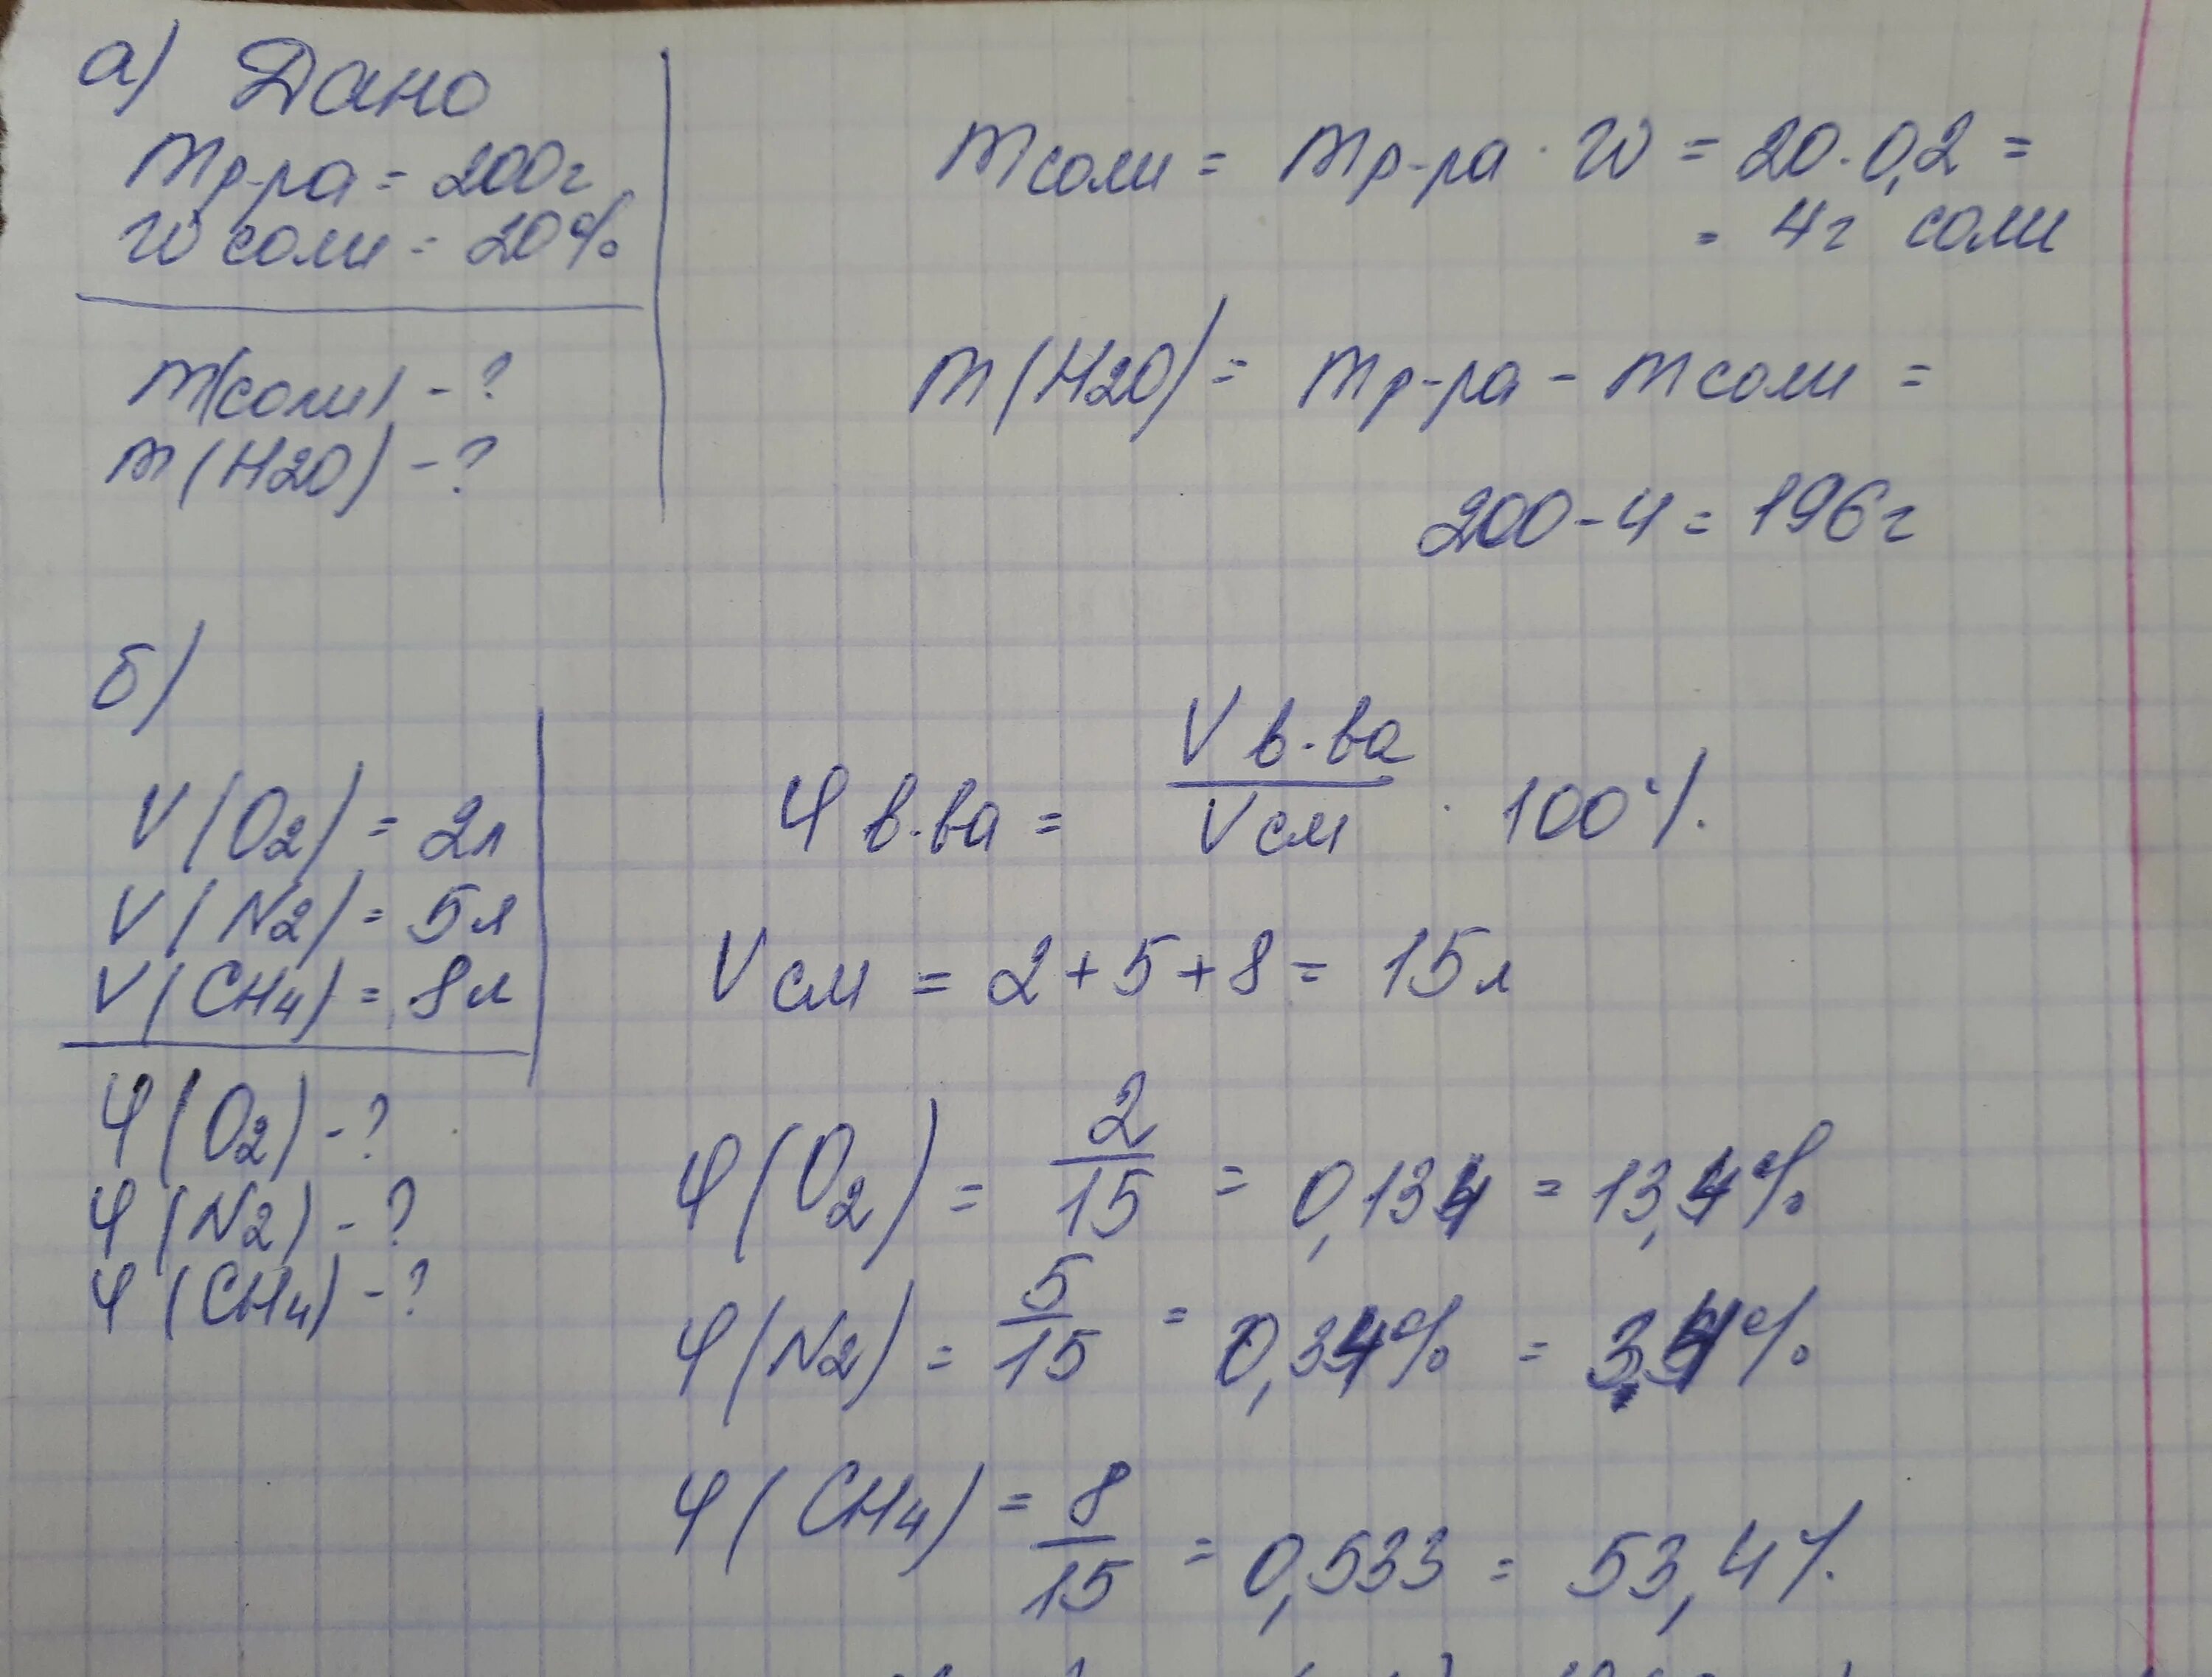 а) Дано
mр-ра = 200г
w соли = 20%
m(соли) - ?
m(H2O) - ?
mсоли = mр-ра · w = 20 · 0,2 =
= 4г соли
m(H2O) = mр-ра - mсоли =
200 - 4 = 196г
б)
V(O2) = 2л
V(N2) = 5л
V(CH4) = 8л
φ(O2) - ?
φ(N2) - ?
φ(CH4) - ?
φ в-ва = V в-ва / V см · 100%
V см = 2 + 5 + 8 = 15л
φ(O2) = 2/15 = 0,134 = 13,4%
φ(N2) = 5/15 = 0,34% =
φ(CH4) = 8/15 = 0,533 = 53,4%